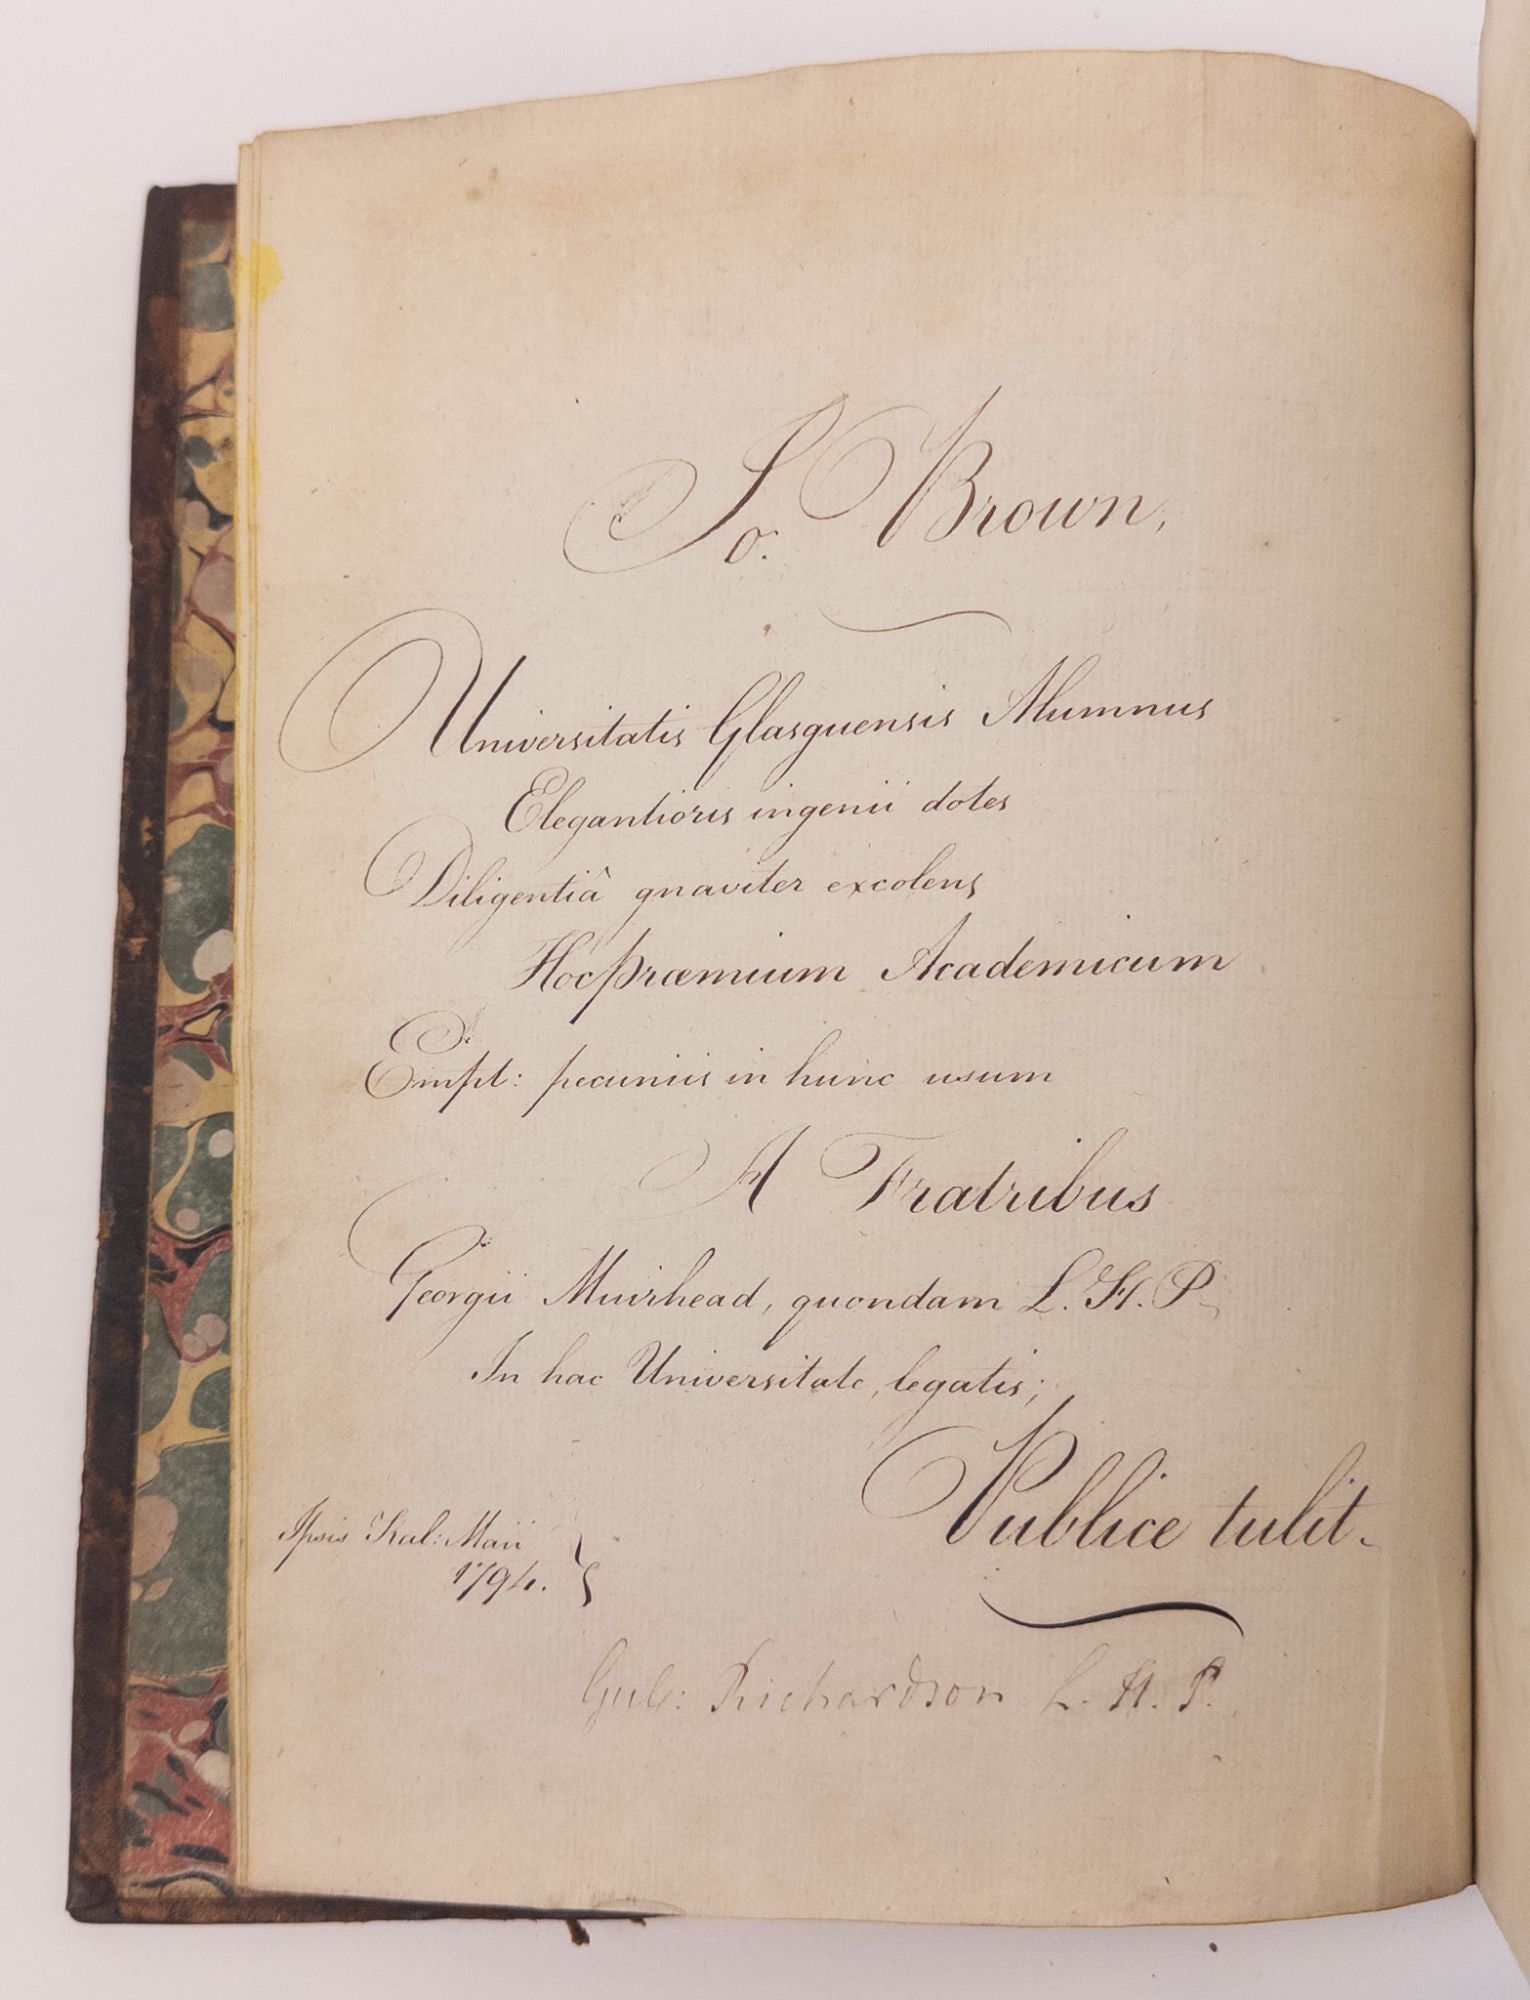 Jo. Brown,
Universitatis Glasguensis Alumnus
Elegantioris ingenii dotes
Diligentiâ gnaviter excolens
Hoc præmium Academicum
Empt: pecuniis in hunc usum
A Fratribus
Georgii Muirhead, quondam L. H. P.
In hac Universitate, legatis;
Publice tulit.
Ipsis Kal: Maii
1794.
Gul: Richardson L. H. P.